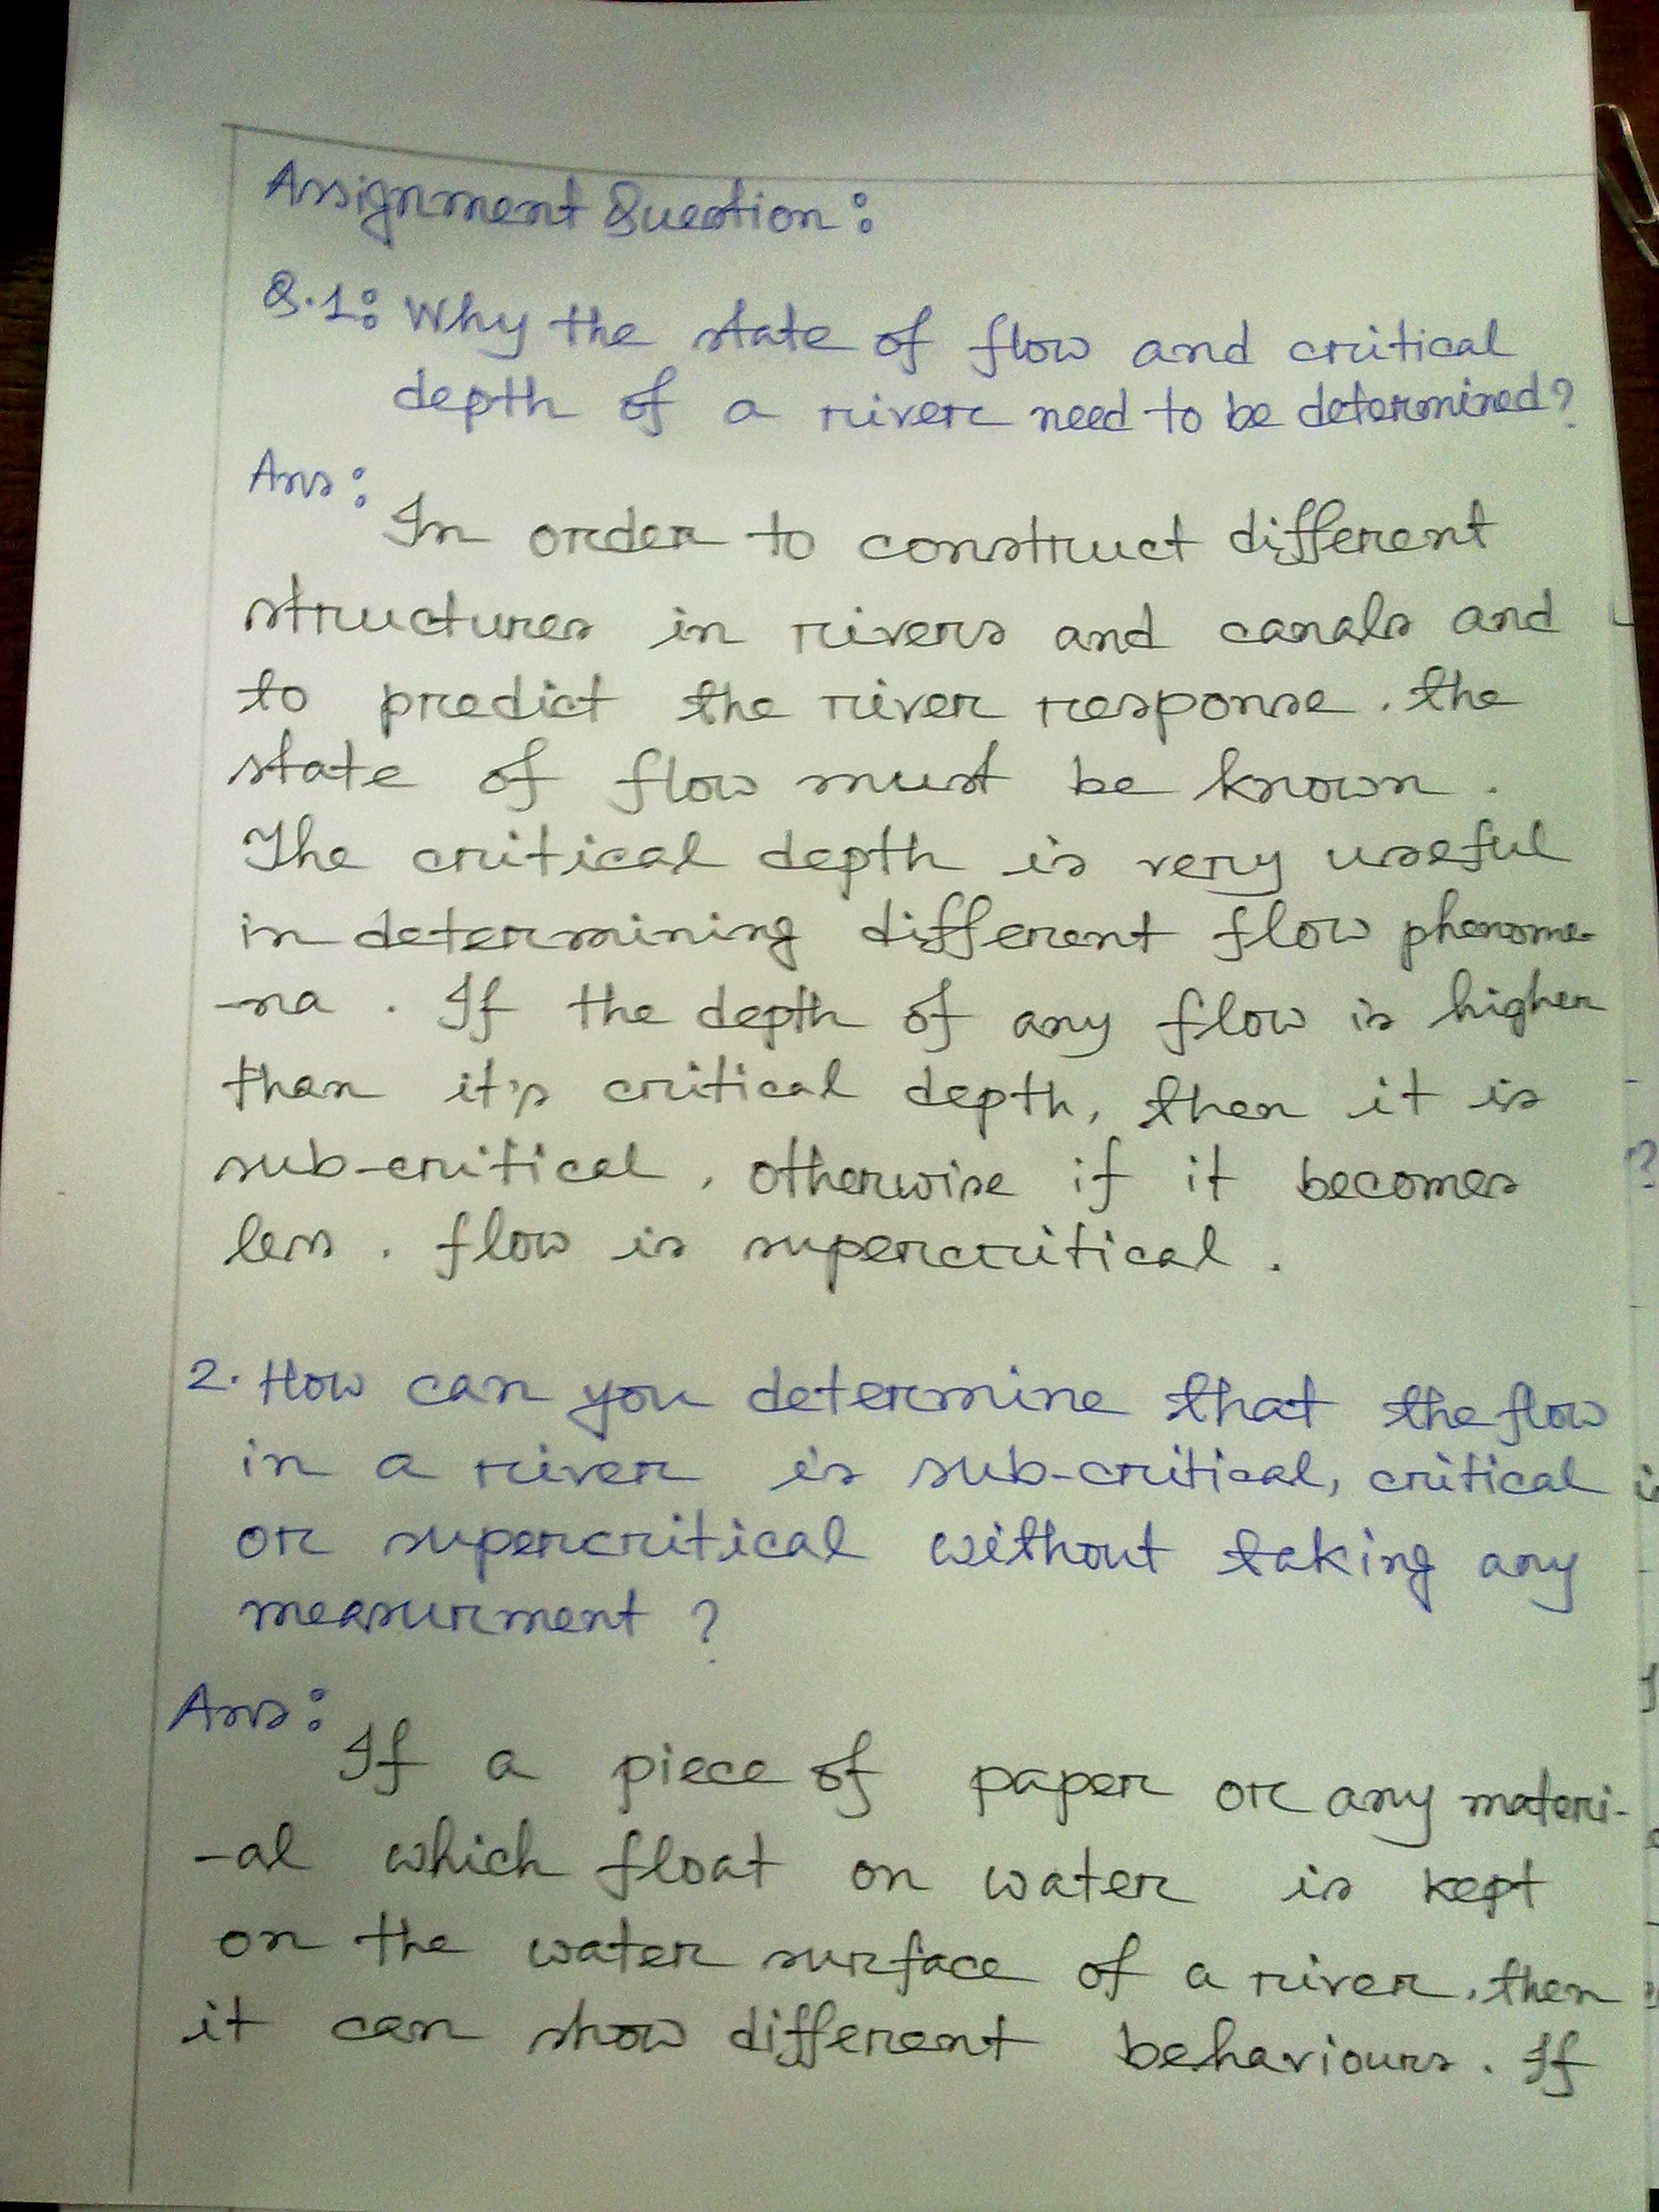 Assignment Question:
Q.1: Why the state of flow and critical
depth of a river need to be determined?
Ans:
In order to construct different
structures in rivers and canals and
to predict the river response, the
state of flow must be known.
The critical depth is very useful
in determining different flow phenome-
-na. If the depth of any flow is higher
than it's critical depth, then it is
sub-critical, otherwise if it becomes
less, flow is supercritical.
2. How can you determine that the flow
in a river is sub-critical, critical
or supercritical without taking any
measurment ?
Ans:
If a piece of paper or any materi-
-al which float on water is kept
on the water surface of a river, then
it can show different behaviours. If